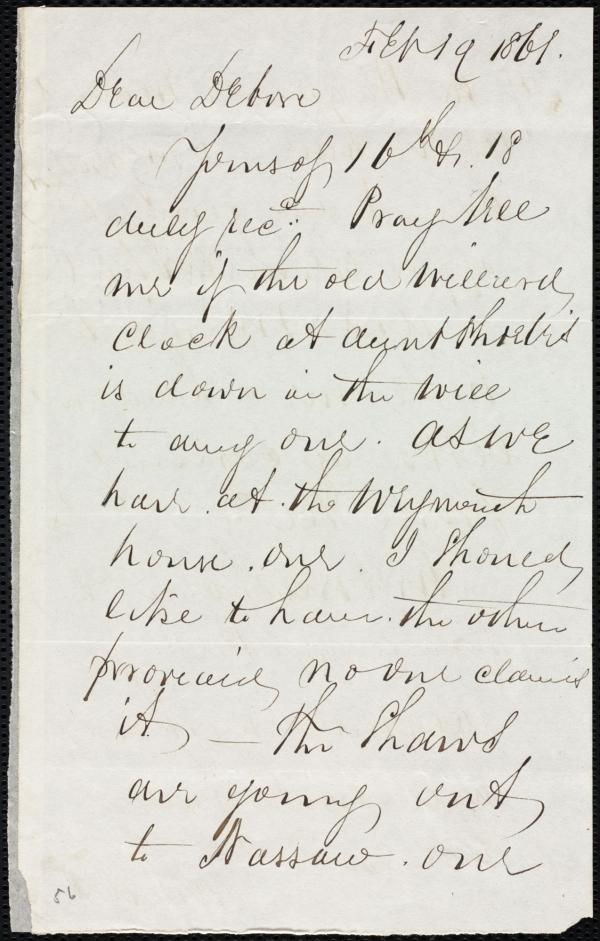 Feb 19 1861.
Dear Debora
Yours of 16th & 18
duly recd. Pray tell
me if the old Willard
clock at aunt Phoebe's
is down in the will
to any one. As we
have at the Weymouth
house one. I should
like to have the other
provided no one claims
it — The Shaws
are going out
to Nassau. one
56